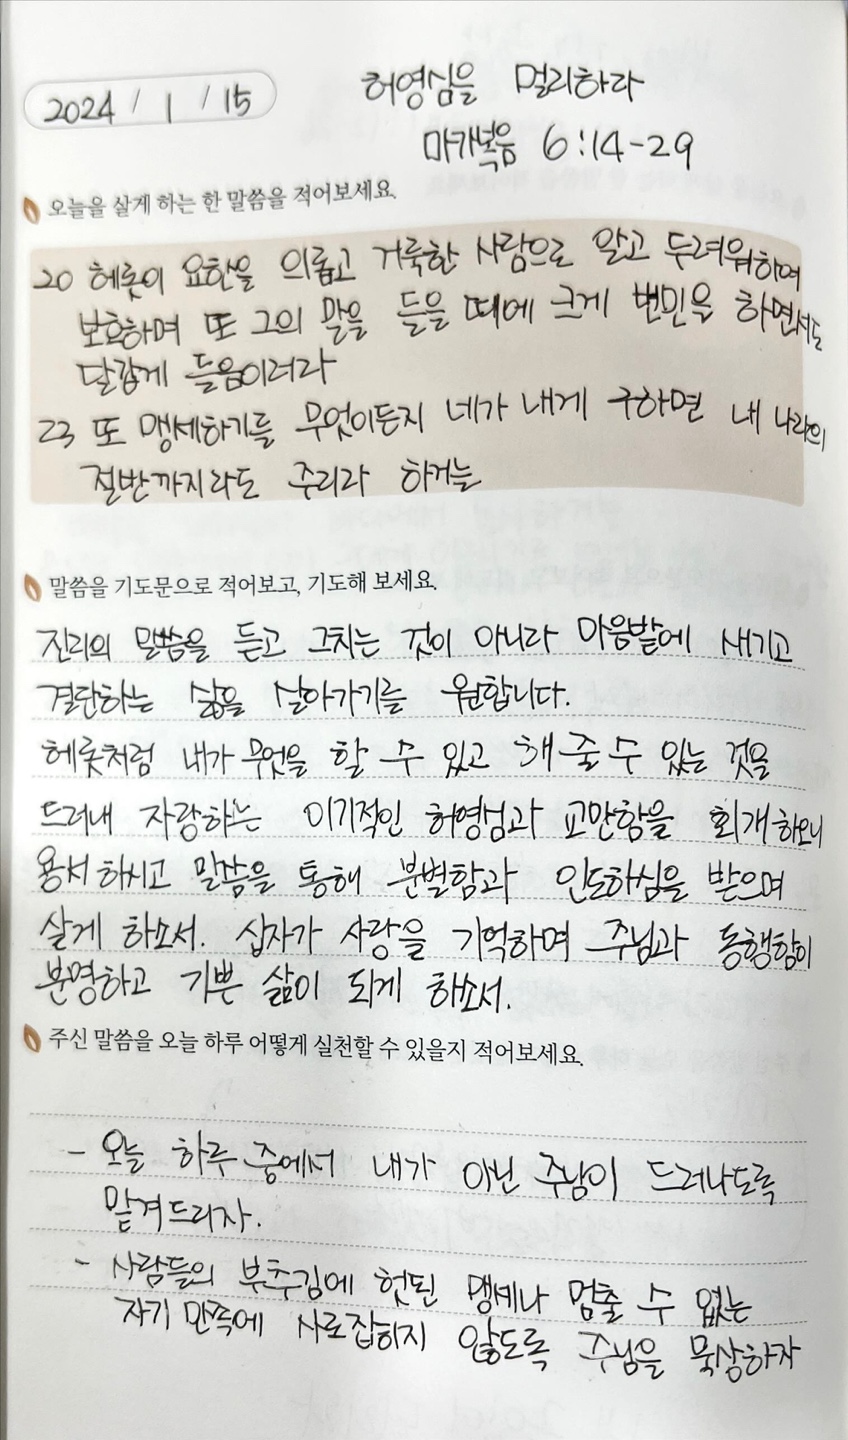 2024 / 1 / 15
허영심을 멀리하라
마가복음 6:14-29
오늘을 살게 하는 한 말씀을 적어보세요.
20 헤롯이 요한을 의롭고 거룩한 사람으로 알고 두려워하여
보호하며 또 그의 말을 들을 때에 크게 번민을 하면서도
달갑게 들음이러라
23 또 맹세하기를 무엇이든지 네가 내게 구하면 내 나라의
절반까지라도 주리라 하거늘
말씀을 기도문으로 적어보고, 기도해 보세요.
진리의 말씀을 듣고 그치는 것이 아니라 마음밭에 새기고
결단하는 삶을 살아가기를 원합니다.
헤롯처럼 내가 무엇을 할 수 있고 해 줄 수 있는 것을
드러내 자랑하는 이기적인 허영심과 교만함을 회개하오니
용서하시고 말씀을 통해 분별함과 인도하심을 받으며
살게 하소서. 십자가 사랑을 기억하며 주님과 동행함이
분명하고 기쁜 삶이 되게 하소서.
주신 말씀을 오늘 하루 어떻게 실천할 수 있을지 적어보세요.
- 오늘 하루 중에서 내가 아닌 주님이 드러나도록
맡겨드리자.
- 사람들의 부추김에 헛된 맹세나 멈출 수 없는
자기 만족에 사로잡히지 않도록 주님을 묵상하자